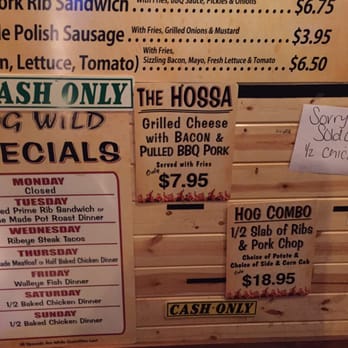 Rib Sandwich With Fries, BBQ Sauce, Pickles & Onions $6.75
Polish Sausage With Fries, Grilled Onions & Mustard $3.95
With Fries,
Lettuce, Tomato) Sizzling Bacon, Mayo, Fresh Lettuce & Tomato $6.50
CASH ONLY
WILD
MONDAY
Closed
TUESDAY
Prime Rib Sandwich or
Made Pot Roast Dinner
WEDNESDAY
Ribeye Steak Tacos
THURSDAY
Meatloaf or Half Baked Chicken Dinner
FRIDAY
Walleye Fish Dinner
SATURDAY
1/2 Baked Chicken Dinner
SUNDAY
1/2 Baked Chicken Dinner
THE HOSSA
Grilled Cheese
with BACON &
PULLED BBQ PORK
Served with Fries
Only
$7.95
Sorry
Sold
1/2
HOG COMBO
1/2 Slab of Ribs
& Pork Chop
Choice of Potato &
Choice of Side & Corn Cob
Only
$18.95
CASH ONLY